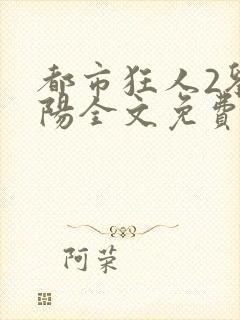 都市狂人2
陽全文免費
阿荣